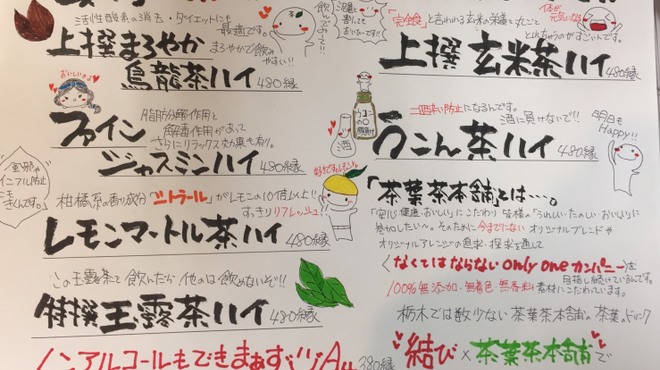 活性酸素の消去・ダイエットにも
最適です。
上撰まろやか
まろやかで飲み
やすい!!
烏龍茶ハイ 480縁
おいしいわよ
脂肪分解作用と
解毒作用があって
さらにリラックス効果も有り。
ファイン
ジャスミンハイ 480縁
風邪や
インフル防止
もきくんです。
柑橘系の香り成分「シトラール」がレモンの10倍以上!!
すっきりリフレッシュ!!
レモンマートル茶ハイ 480縁
この玉露茶で飲んだら他のは飲めないぞ!!
特撰玉露茶ハイ 480縁
ノンアルコールもできまぁす
All 380縁
「完全食」と言われる玄米の栄養をたっぷ
とれちゃうのがすごいんです。
体が
元気になる
上撰玄米茶ハイ 480縁
二日酔い防止になるんです。
酒に負けないで!!
明日も
Happy!!
酒
うこん茶ハイ 480縁
「茶葉茶本舗」とは…。
「安心・健康・おいしい」にこだわり皆様の「うれしい・たのしい・おいしい」に
参加したい〜。そのために今までにないオリジナルブレンドや
オリジナルアレンジの追求・探求を通して
〈なくてはならないonly oneカンパニー〉を
目指し続けているんです。
100%無添加・無着色・無香料素材にこだわっています。
栃木では数少ない茶葉茶本舗の茶葉のドリンク
結び×茶葉茶本舗で